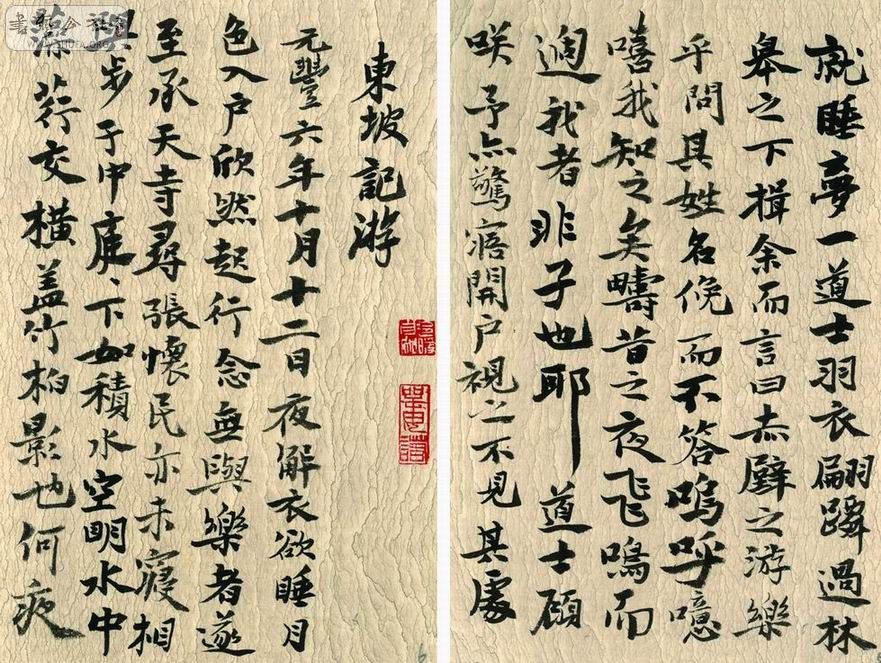 就睡夢一道士羽衣翩躚過林
皋之下揖余而言曰赤壁之游樂
乎問其姓名俛而不答嗚呼噫
嘻我知之矣疇昔之夜飛鳴而
過我者非子也耶道士顧
咲予亦驚寤開户視之不見其處
東坡記游
元豐六年十月十二日夜解衣欲睡月
色入户欣然起行念無與樂者遂
至承天寺尋張懷民亦未寢相
與步于中庭、下如積水空明水中
藻荇交橫盖竹柏影也何夜
6